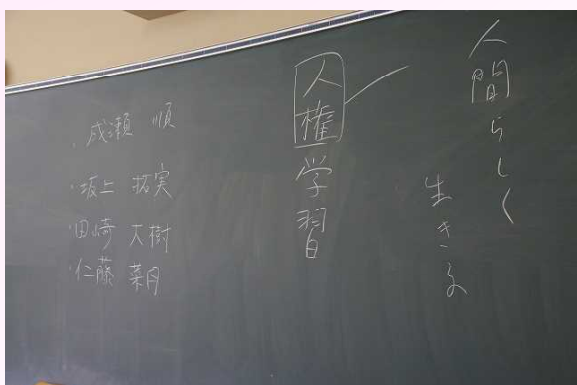 人間らしく
生きる
人権学習
・成瀬 順
・坂上 拓実
・田崎 大樹
・仁藤 菜月